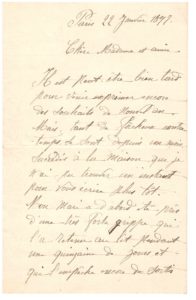 Paris 22 Janvier 1897.
Chère Madame et amie
Il est peut être bien tard
pour vous exprimer encore
des souhaits de nouvel an
Mais, tant de fâcheux contre
temps se sont depuis un mois
succédés à la maison que je
n'ai pu trouver un instant
pour vous écrire plus tôt.
Mon mari a d'abord été pris
d'une très forte grippe qui
l'a retenu au lit pendant
une quinzaine de jours et
qui l'empêche encore de sortir